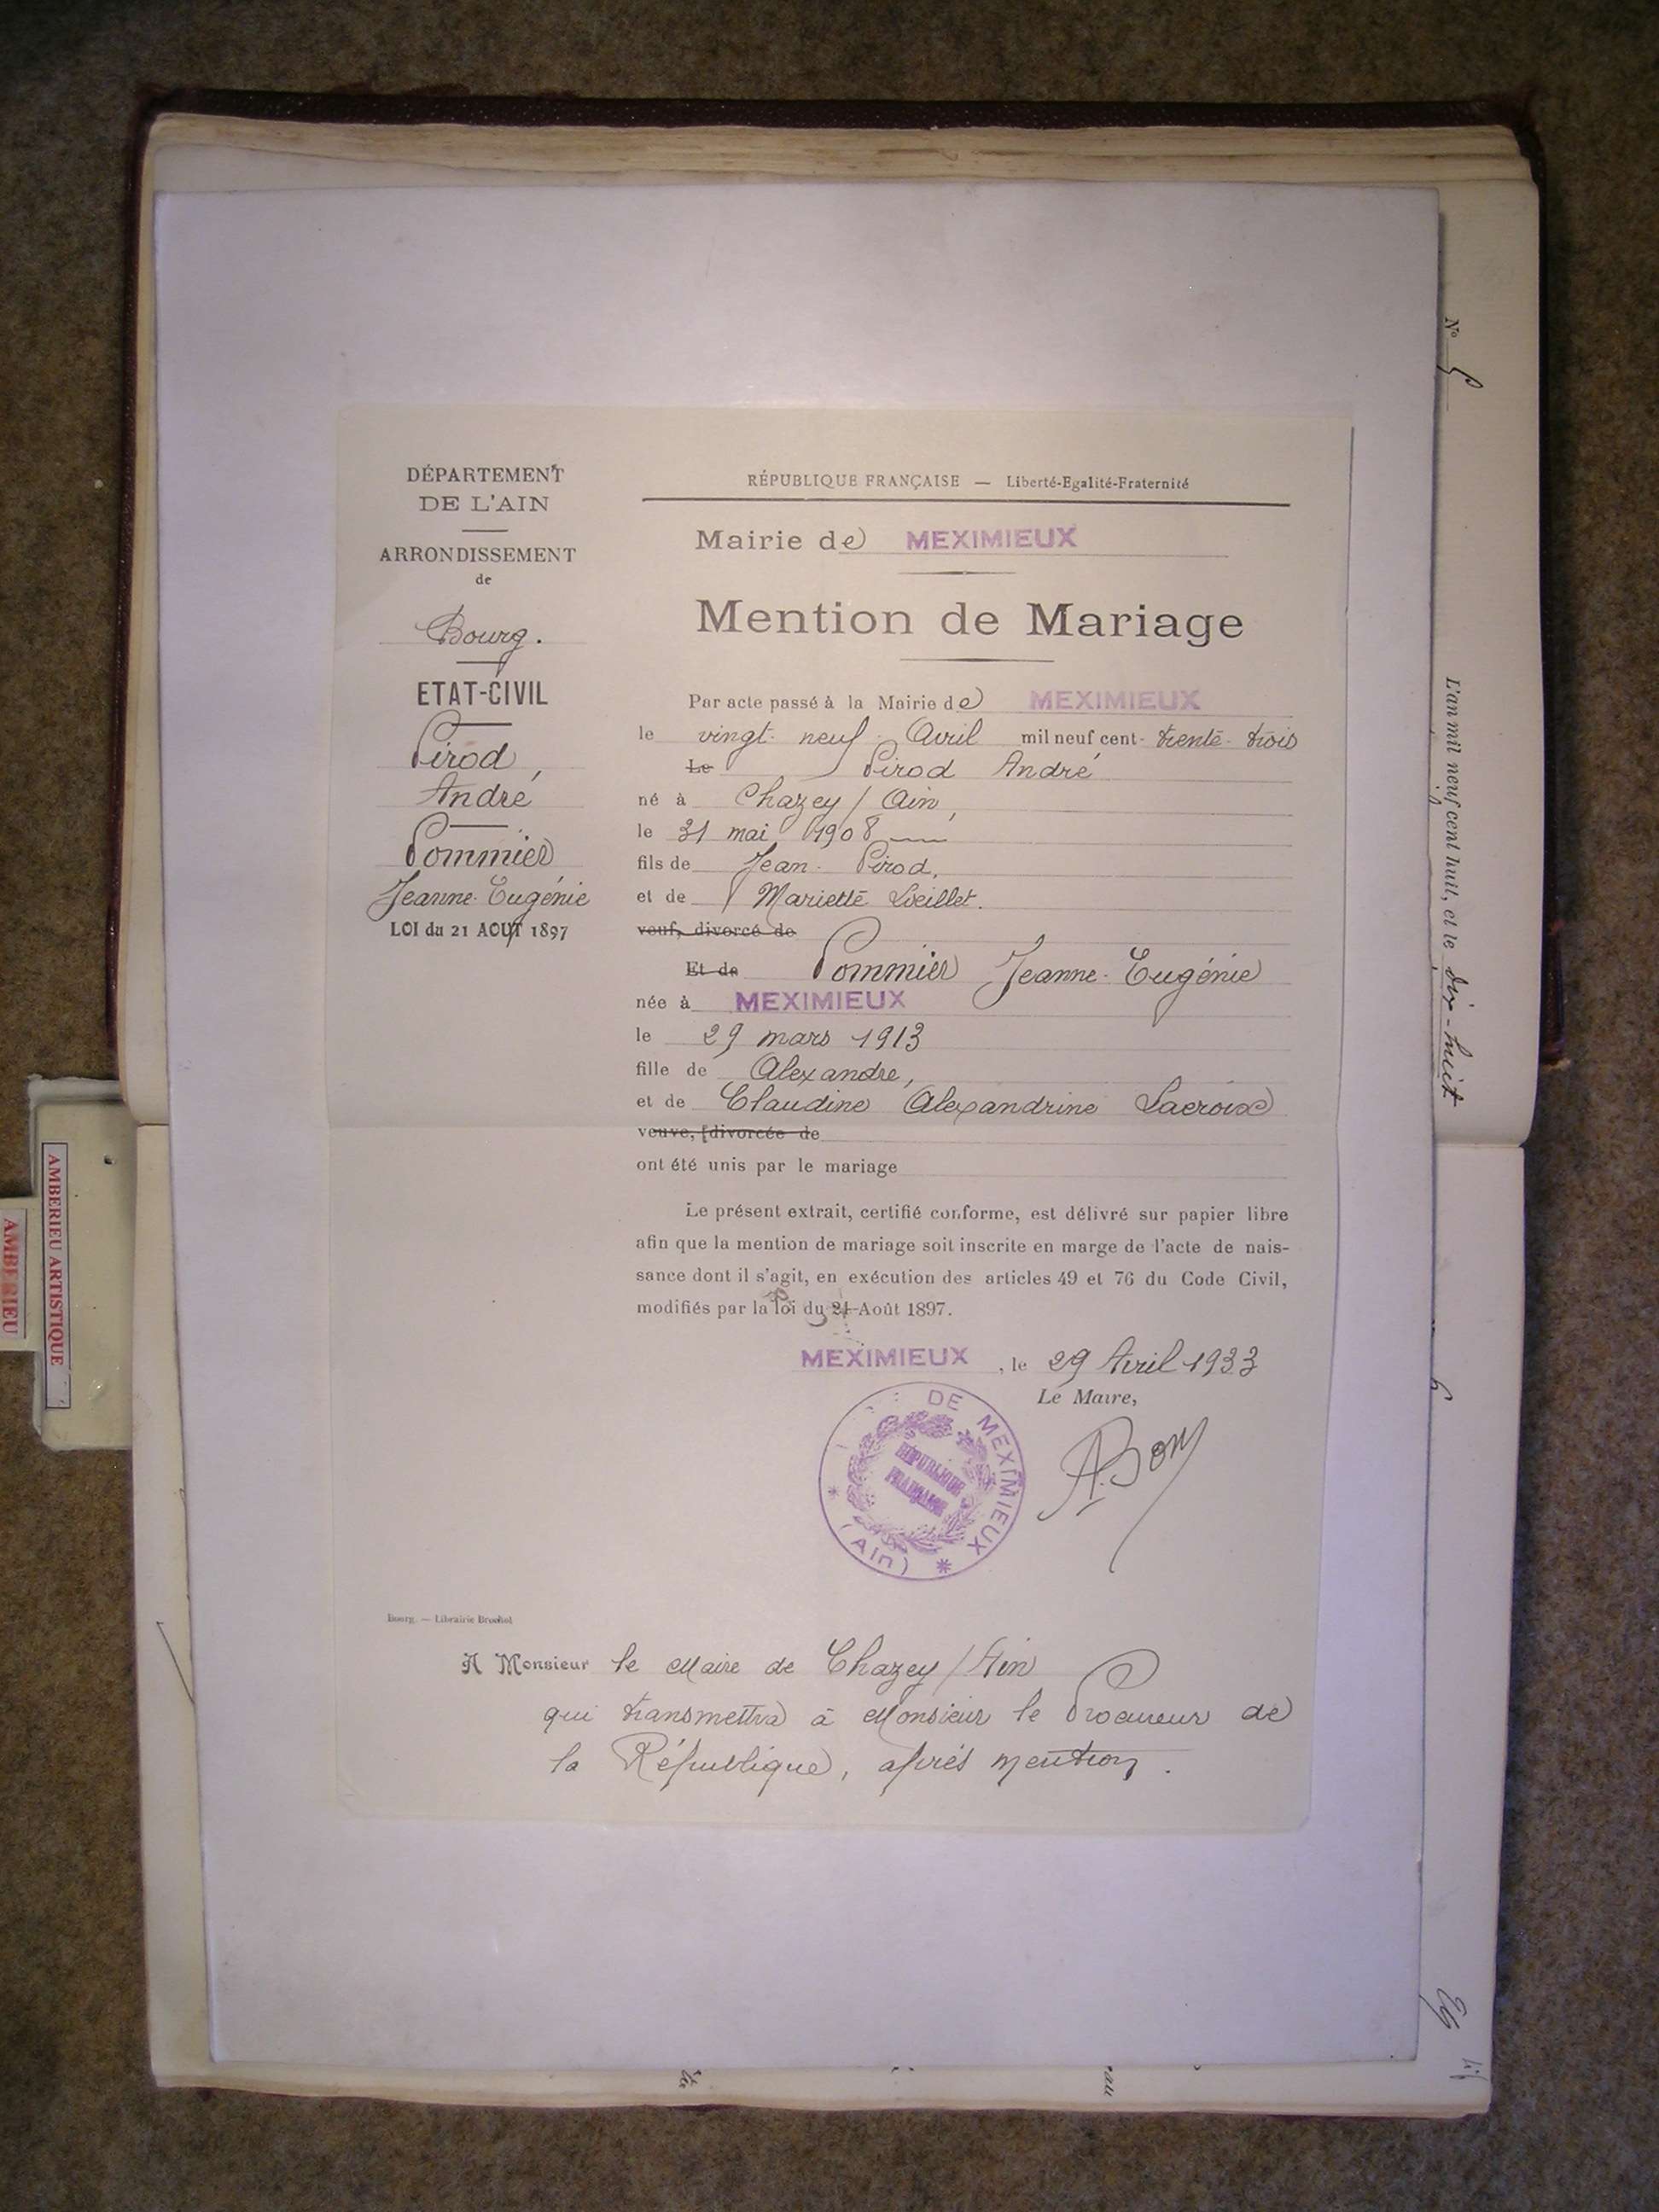 DÉPARTEMENT
DE L'AIN
ARRONDISSEMENT
de
Bourg.
ETAT-CIVIL
Pirod,
André
Pommier
Jeanne-Eugénie
LOI du 21 AOUT 1897
RÉPUBLIQUE FRANÇAISE — Liberté-Egalité-Fraternité
Mairie de MEXIMIEUX
Mention de Mariage
Par acte passé à la Mairie de MEXIMIEUX
le vingt-neuf Avril mil neuf cent-trente-trois
Le Pirod André
né à Chazey/Ain,
le 31 mai 1908
fils de Jean Pirod,
et de Mariette Loeillet.
veuf, divorcé de
Et de Pommier Jeanne-Eugénie
née à MEXIMIEUX
le 29 mars 1913
fille de Alexandre,
et de Claudine Alexandrine Lacroix
veuve, divorcée de
ont été unis par le mariage
Le présent extrait, certifié conforme, est délivré sur papier libre
afin que la mention de mariage soit inscrite en marge de l'acte de nais-
sance dont il s'agit, en exécution des articles 49 et 76 du Code Civil,
modifiés par la loi du 21 Août 1897.
MEXIMIEUX, le 29 Avril 1933
Le Maire,
A. Bon
DE MEXIMIEUX
RÉPUBLIQUE
FRANÇAISE
(Ain)
Bourg. — Librairie Brochot
A Monsieur le Maire de Chazey/Ain
qui transmettra à Monsieur le Procureur de
la République, après mention.
N° 5
L'an mil neuf cent huit, et le dix-huit
AMBERIEU ARTISTIQUE
AMBERIEU